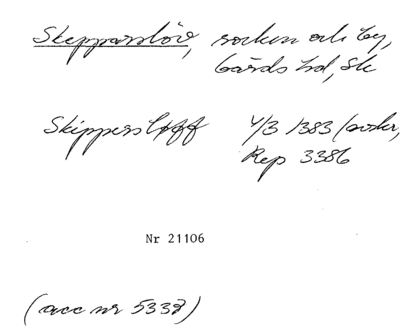 Skepparslöv, socken och by,
Gärds hd, Sk
Skippersløff 4/3 1383 (avskr,
Rep 3386
Nr 21106
(acc nr 5338)